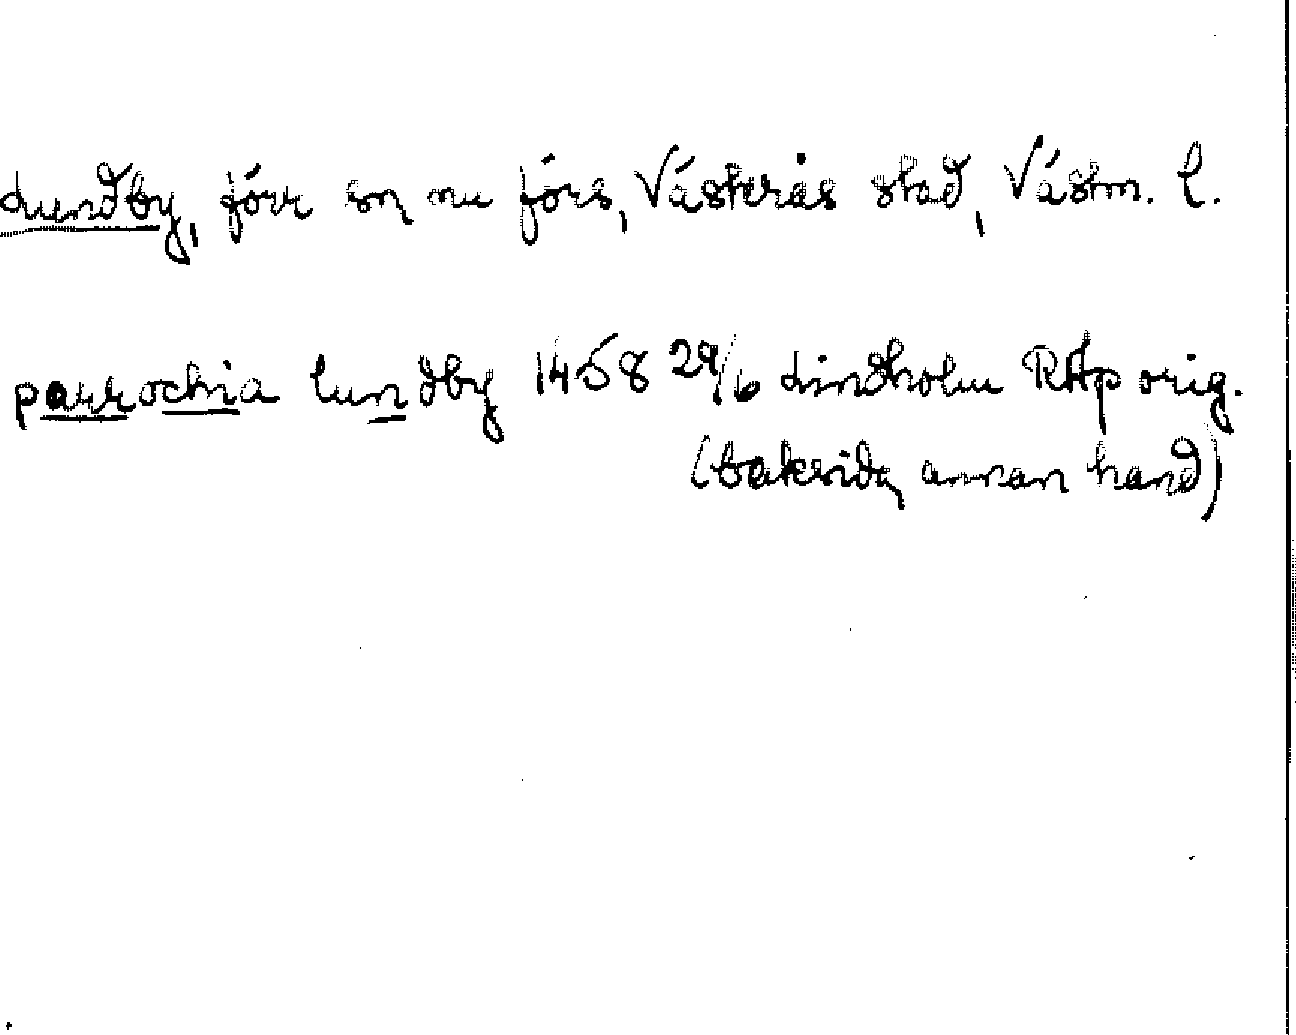 Lundby, förr sn nu förs, Västerås stad, Västm. l.
parrochia lundby 1458 29/6 Lindholm RAp orig.
(baksida, annan hand)